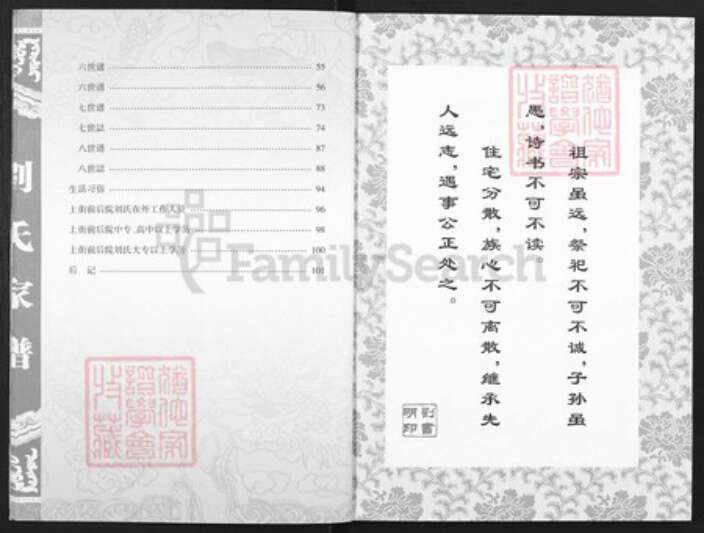 刘氏家谱
六世谱 55
六世谱 56
七世谱 73
七世誌 74
八世谱 87
八世誌 88
生活习俗 94
上街前后院刘氏在外工作人员 96
上街前后院中专、高中以上学员 98
上街前后院刘氏大专以上学员 100
后 记 101
FamilySearch
祖宗虽远,祭祀不可不诚,子孙虽
愚,诗书不可不读。
住宅分散,族心不可离散,继承先
人远志,遇事公正处之。